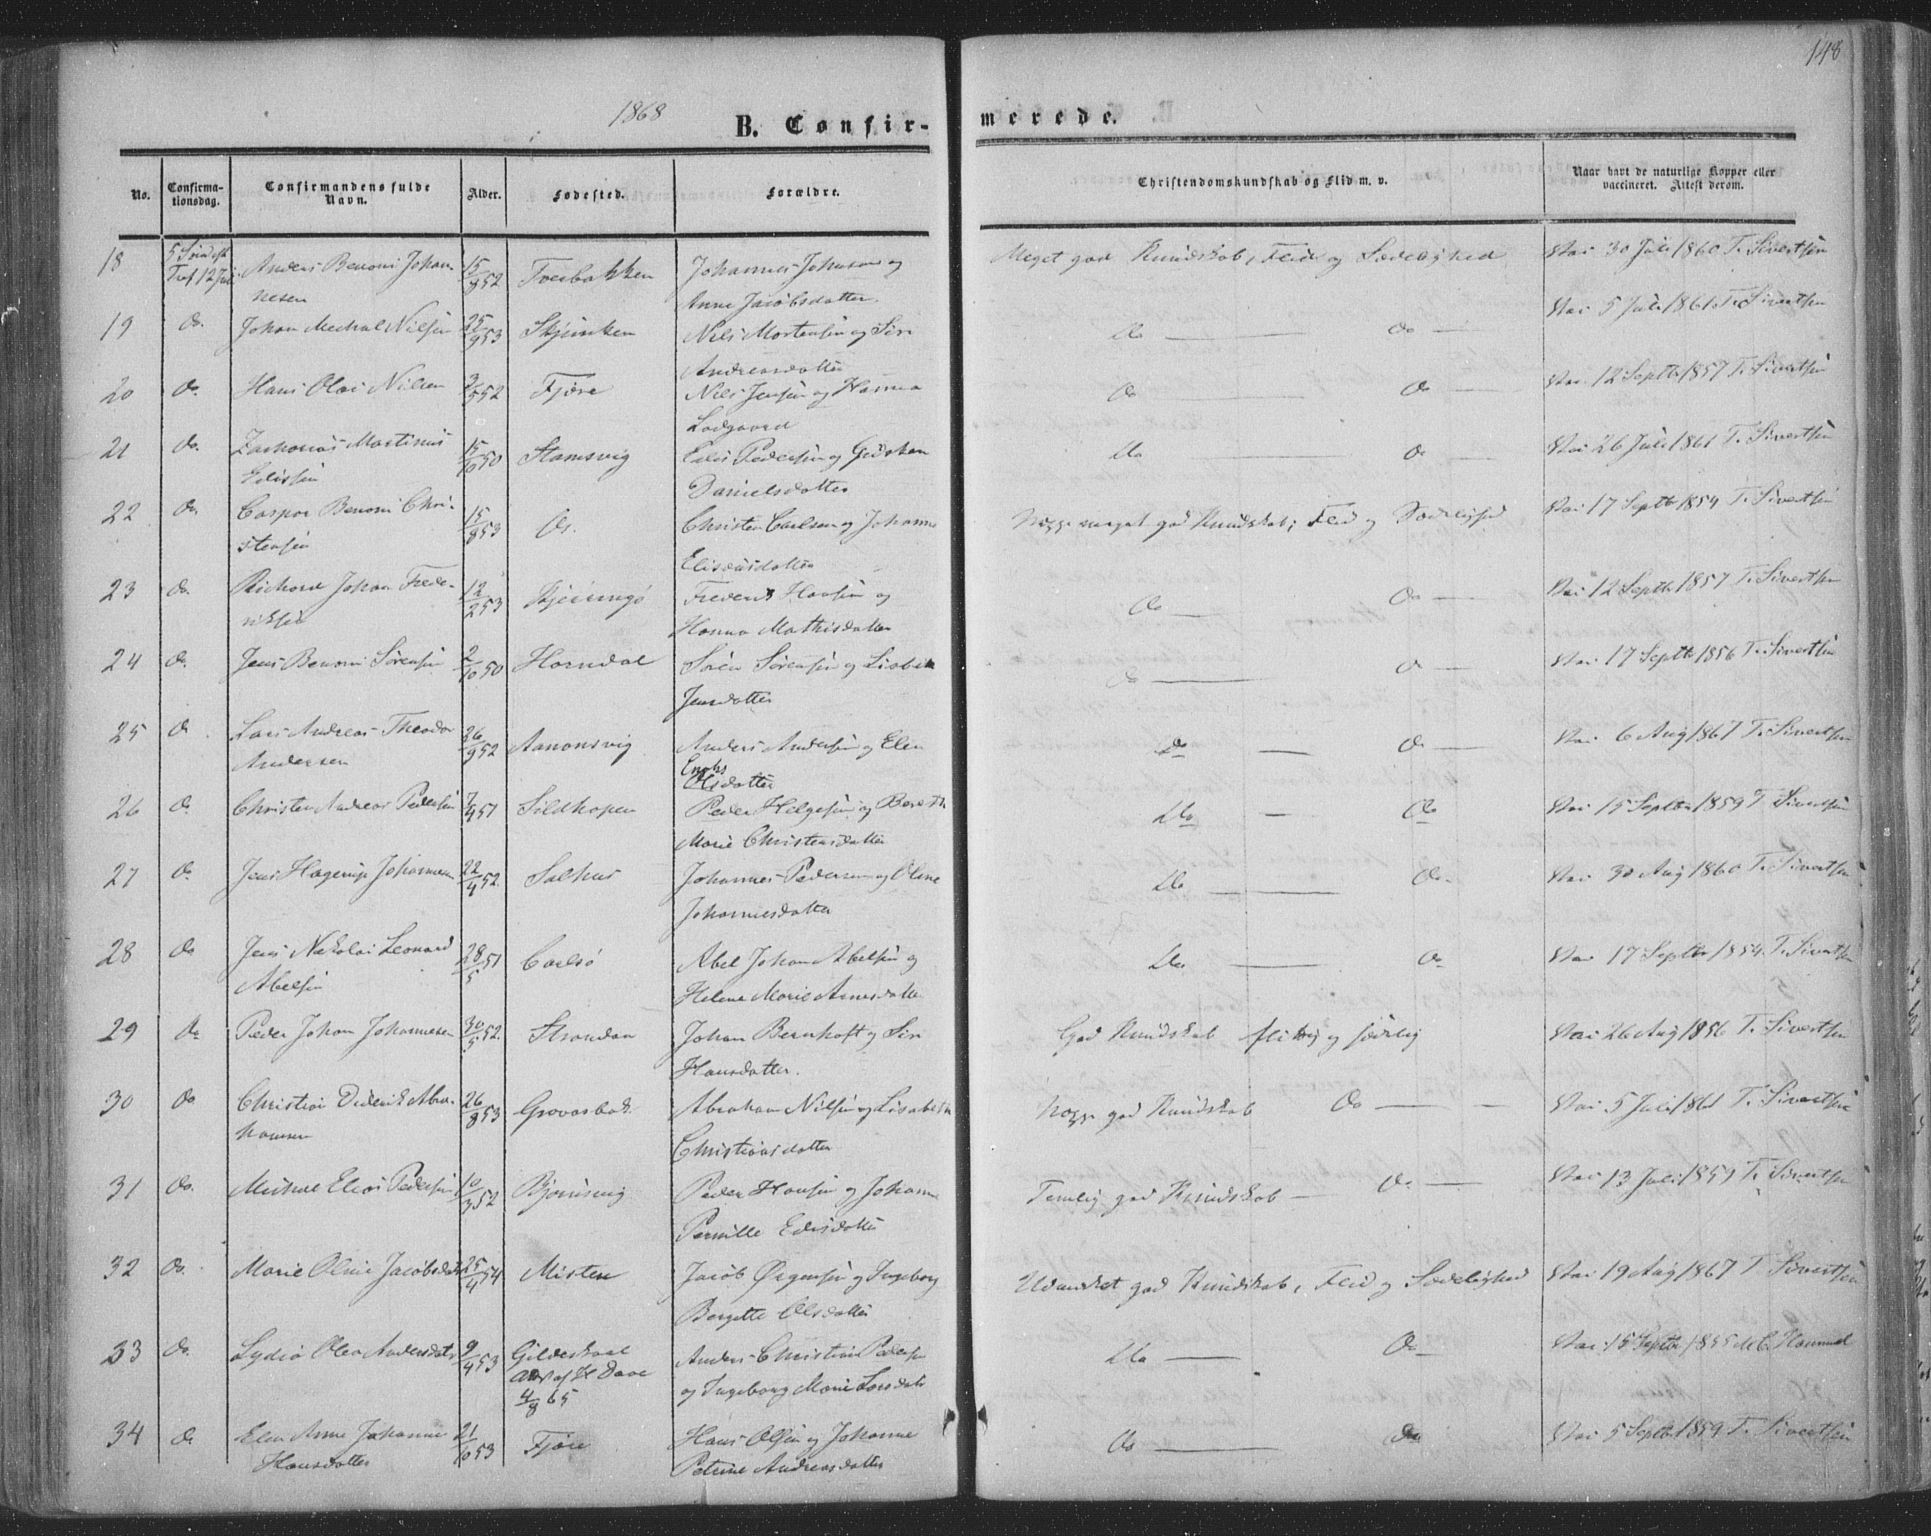 148
1868
B. Confir-
merede.
No.
Confirma-
tionsdag.
Confirmandens fulde
Navn.
Alder.
Fødested.
Forældre.
Christendomskundskab og Flid m. v.
Naar havt de naturlige Kopper eller
vaccineret. Attest derom.
18 5 Trf 12 Juli Anders Benoni Johan- 15/8 52 Johannes Johnsen og Meget god Kundskab, Flid og Sædelighed Vac 30 Juli 1860 T. Sivertsen
nesen Anne Jacobsdatter.
19 Do. Johan Nilsen 25/9 53 Nils Mortensen og Do Do Vac 5 Juli 1861 T. Sivertsen
Andreasdatter
20 Do. Hans Olai Nilsen 52 Fjære Nils Jensen og Hanna Do Do Vac 12 Septbr 1857 T. Sivertsen
Lodgaard
21 Do. Zacharias Martinus 15/10 50 Stamsvig Pedersen og Gidsken Do Do Vac 26 Juli 1861 T. Sivertsen
Danielsdatter
22 Do Caspar Benoni Chri- 15/8 53 Os. Christen Carlsen og Johanne meget god Kundskab, Flid og Sædelighed Vac 17 Septbr 1854 T. Sivertsen
stensen Elisæusdatter
23 Do. Richard Johan Frede- 12/2 53 Frederik Hansen og Do Do Vac 12 Septbr 1857 T. Sivertsen
riksen Hanna Mathisdatter
24 Do. Jens Benoni Sørensen 2/10 50 Horndal Søren Sørensen og Lisbet Do Do Vac 17 Septbr 1856 T. Sivertsen
Jensdatter
25 Do Lars Andreas Theodor 26/9 52 Aanonsvig Anders Andersen og Elen Do Do Vac 6 Aug 1867 T. Sivertsen
Andersen Enoks
Olsdatter
26 Do Christen Andreas Pedersen 7/4 51 Sildhopen Peder Helgesen og Do Do Vac 15 Septbr 1859 T. Sivertsen
Marie Christensdatter
27 Do Jens Hagerup Johannesen 22/4 52 Salhus Johannes Pedersen og Oline Do Do Vac 30 Aug 1860 T. Sivertsen
Johannesdatter
28 Do Jens Nikolai Leonard 28/5 51 Carlsø Abel Johan Abelsen og Do Do Vac 17 Septbr 1854 T. Sivertsen
Abelsen Helene Marie Arnesdatter
29 Do Peder Johan Johannesen 30/5 52. Strandaa Johan Bernhoft og Siri God Kundskab flittig og sædelig Vac 26 Aug 1856 T. Sivertsen
Hansdatter.
30 Do Christian Diderik Abra- 26/8 53 Abraham Nilsen og Lisabeth god Kundskab Do Vac 5 Juli 1861 T. Sivertsen
hamsen Christiansdatter
31 Do. Michael Elias Pedersen 10/3 52 Bjørnsvig Peder Hansen og Johanne Temlig god Kundskab Do Vac 13 Juli 1859 T. Sivertsen
Pernille
32 Do. Marie Oline Jacobsdatter 25/4 54 Misten Jacob Ørgensen og Ingeborg Udmærket god Kundskab, Flid og Sædelighed Vac 19 Aug 1867 T. Sivertsen
Bergette Olsdatter
33 Do. Lydia Olea Andersdatr 9/4 53 Gildeskaal Anders Christian Pedersen Do Do Vac 15 Septbr 1855
4/8 65 og Ingeborg Marie Larsdatr
34 Do Elen Anne Johanne 21/10 53 Fjære Hans Olsen og Johanne Do Do Vac 5 Septbr 1859 T. Sivertsen
Hansdatter Petrine Andreasdatter